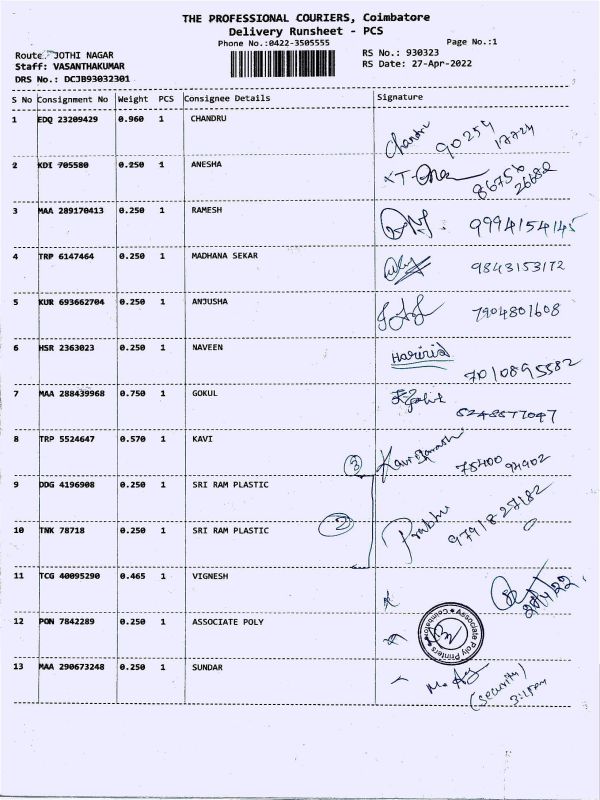 THE PROFESSIONAL COURIERS, Coimbatore
Delivery Runsheet - PCS
Phone No.:0422-3505555
Page No.:1
Route. JOTHI NAGAR
RS No.: 930323
Staff: VASANTHAKUMAR
RS Date: 27-Apr-2022
DRS No.: DCJB93032301
S No Consignment No Weight PCS Consignee Details Signature
1 EDQ 23209429 0.960 1 CHANDRU Chandru 90259 17724
2 KDI 705580 0.250 1 ANESHA 86756 26682
3 MAA 289170413 0.250 1 RAMESH 9994154145
4 TRP 6147464 0.250 1 MADHANA SEKAR 9843153172
5 KUR 693662704 0.250 1 ANJUSHA 7904801608
6 HSR 2363023 0.250 1 NAVEEN 7010895582
7 MAA 288439968 0.750 1 GOKUL
8 TRP 5524647 0.570 1 KAVI 75400 94902
3
9 DDG 4196908 0.250 1 SRI RAM PLASTIC
2
10 TNK 78718 0.250 1 SRI RAM PLASTIC Prabhu 97918-27182
11 TCG 40095290 0.465 1 VIGNESH
12 PON 7842289 0.250 1 ASSOCIATE POLY Associate Poly Printers Coimbatore
13 MAA 290673248 0.250 1 SUNDAR (Security)